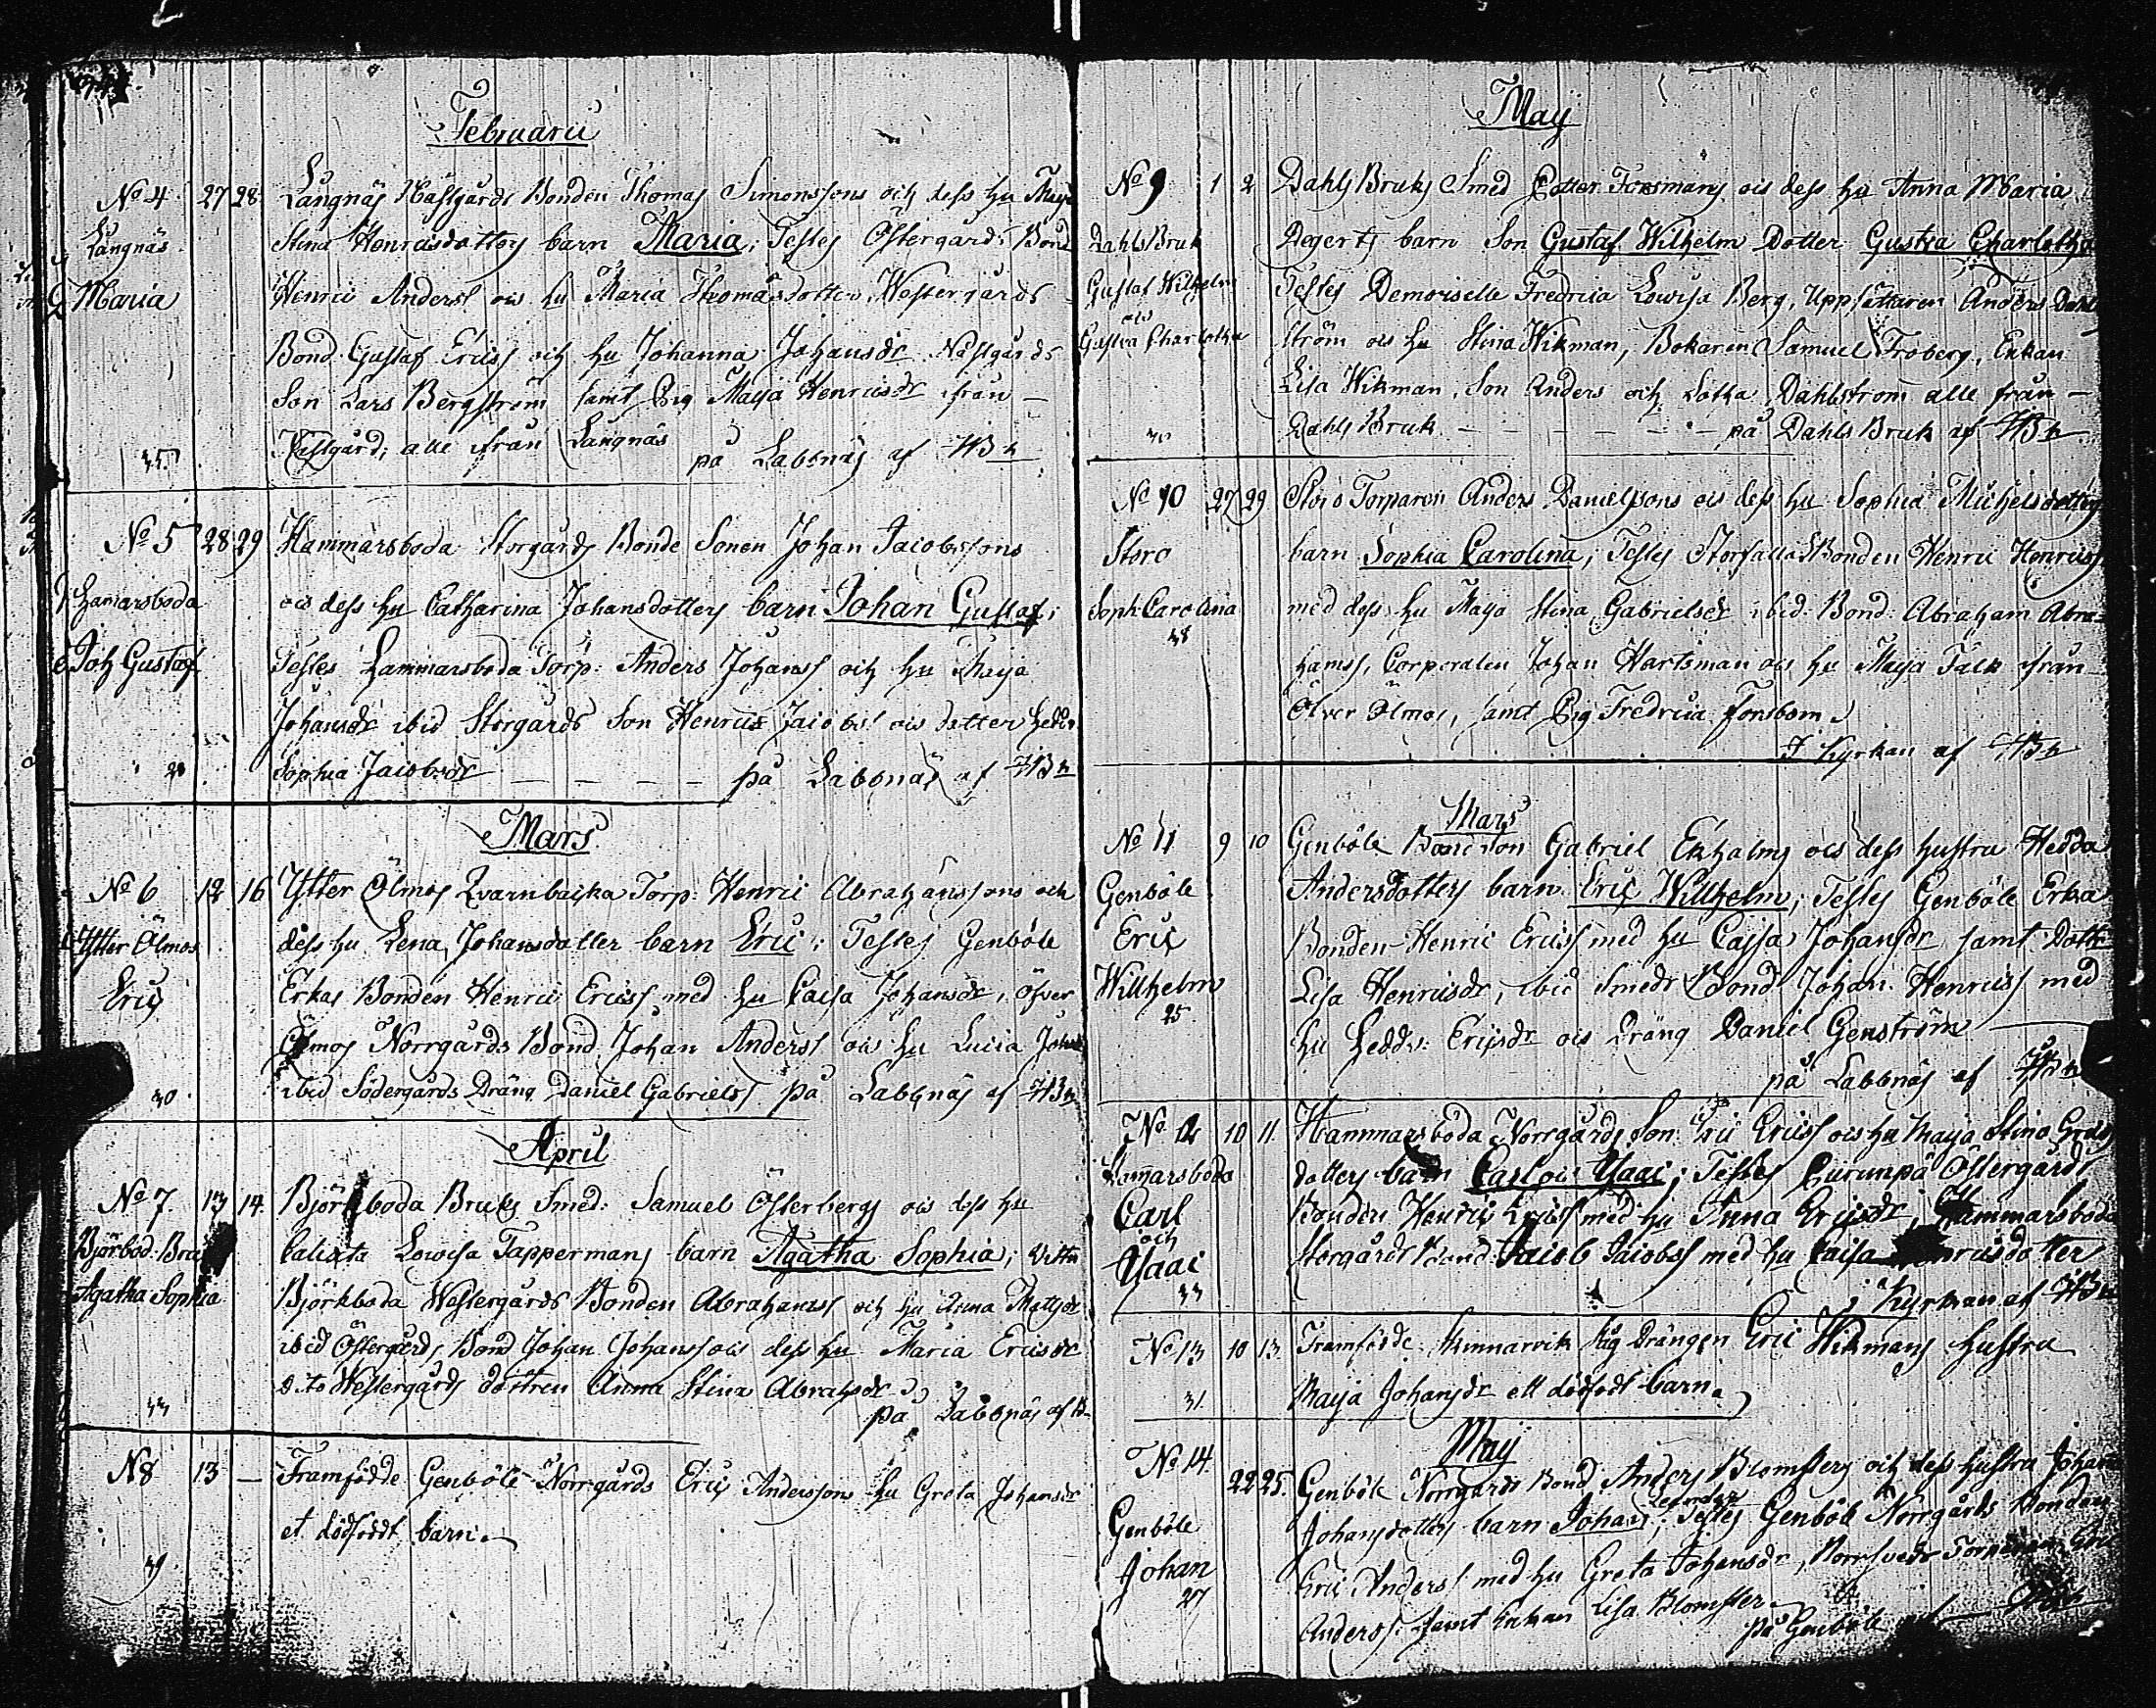 Februarii
No 4 27 28 Långnäs Nästgårds Bonden Thomas Simonssons och dess hu Maja
Långnäs Stina Henricsdotters barn Maria; Testes Östergårds Bond
Maria Henric Anderss och hu Maria Thomasdotter, Westergårds
Bond. Gustaf Ericss och hu Johanna Johansdr Nästgårds
Son Lars Bergström samt Pig Maja Henricsdr ifrån
35. Nästgård; alle ifrån Långnäs på Labbnäs af HBk
No 5 28 29 Hammarsboda Storgårds Bonde Sonen Johan Jacobssons
Hamarsboda och dess hu Catharina Johansdotters barn Johan Gustaf;
Joh Gustaf Testes Hammarsboda Torp: Anders Johanss och hu Maja
Johansdr ibid Storgårds Son Henric Jacobss och dotter Hedda
Sophia Jacobsdr — — — — på Labbnäs af HBk
Mars
No 6 12 16 Ytter Ölmos Qvarnbacka Torp: Henric Abrahamssons och
Ytter Ölmos dess hu Lena Johansdotter barn Eric; Testes Genböle
Eric Erkas Bonden Henric Ericss med hu Caisa Johansdr, Öfver
Ölmos Norrgårds Bond Johan Anderss och hu Lucia
30 ibid Södergårds Dräng Daniel Gabrielss på Labbnäs af HBk
April
No 7. 13 14. Björkboda Bruks Smed: Samuel Österbergs och dess hu
Björbod: Bruk Calixta Lowisa Tappermans barn Agatha Sophia; Vittn
Agatha Sophia Björkboda Westergårds Bonden Abrahamss och hu Anna Mattsdr
ibid Östergårds Bond Johan Johanss och dess hu Maria Ericsdr
Dito Westergårds dottren Anna Stina Abrahsdr
33 på Labbnäs af B
N8 13 — Framfödde Genböle Norrgårds Eric Anderssons hu Greta Johansdr
et dödfödt barn.
39.
Maij
No 9 1 2 Dahls Bruks Smed Petter Forsmans och dess hu Anna Maria
Dahls Bruk Degerts barn Son Gustaf Wilhelm Dotter Gustva Charlotha
Gustaf Wilhelm Testes Demoiselle Fredrica Lowisa Berg, Uppsättaren Anders Dahl
och
Gustva Charlotha ström och hu Stina Wikman, Bokaren Samuel Froberg, Enkan
Lisa Wikman, Son Anders och Lotha Dahlström alle från
30 Dahls Bruk — — — — — på Dahls Bruk af HBk
No 10 27 29 Storö Torparen Anders Danielssons och dess hu Sophia Michelsdotters
Storö barn Sophia Carolina; Testes Storfalla Bonden Henric Henricss
Soph Carolina med dess hu Maja Stina Gabrielsdr ibid: Bond: Abraham Abra-
38 hamss, Corporalen Johan Hartsman och hu Maja Falk ifrån
Öfver Ölmos, samt Pig Fredrica Forsbom
I Kyrkan af HBk
Mars
No 11 9 10 Genböle Bondson Gabriel Ekholms och dess hustru Hedda
Genböle Andersdotters barn Eric Willhelm; Testes Genböle Erkas
Eric Bonden Henric Ericss med hu Cajsa Johansdr samt Dott
Willhelm Lisa Henricsdr, ibid Smeds Bond Johan Henricss med
25 hu Hedda Ericsdr och Dräng Daniel Genström
på Labbnäs af HBk
No 12 10 11. Hammarsboda Norrgårds Son Eric Ericss och hu Maja Stina
Hamarsboda dotters barn Carl och Ysaac; Testes Östergårds
Carl Bonden Henric Ericss med hu Anna Ericsdr, Hammarsboda
och
Ysaac Storgårds Bond Jacob Jacobss med hu Caisa Henricsdotter
33 i Kyrkan af HBk
No 13 10 13. Framfödde Drängen Eric Wikmans hustru
31. Maja Johansdr ett dödfödt barn.
Maij
No 14. 22 25. Genböle Norrgårds Bond Anders Blomsters och dess hustru Johan
Leander
Genböle Johansdotters barn Johan; Testes Genböle Norrgårds Bonden
Johan Eric Anderss med hu Greta Johansdr,
27 Anderss. samt Enkan Lisa Blomster
på Genböle af HBk